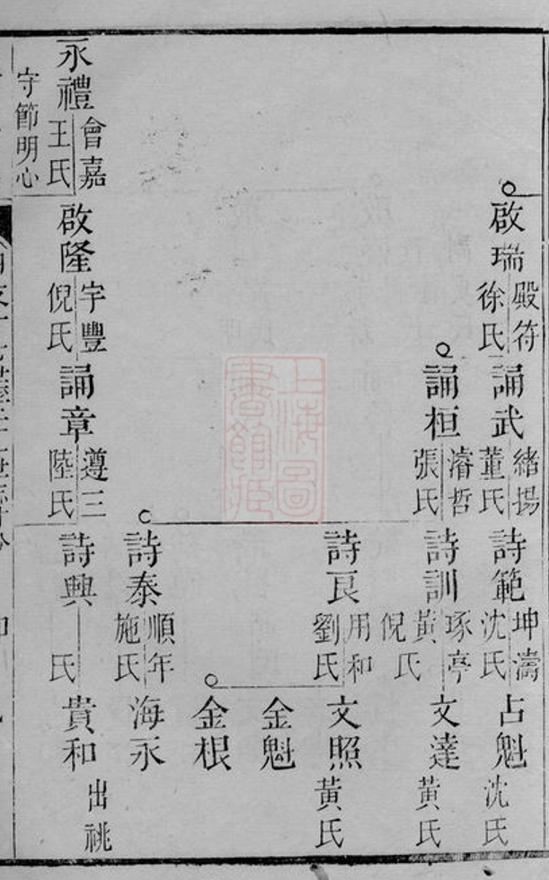 啟瑞 殿符 徐氏
誦武 緒揚 董氏
詩範 坤濤 沈氏
占魁 沈氏
誦桓 濬哲 張氏
詩訓 琢亭 黃氏 倪氏
文達 黃氏
詩良 用和 劉氏
文照 黃氏
金魁
金根
詩泰 順年 施氏
海永
永禮 會嘉 王氏 守節明心
啟隆 字豐 倪氏
誦章 遵三 陸氏
詩興 氏
貴和 出祧
上海圖書館藏